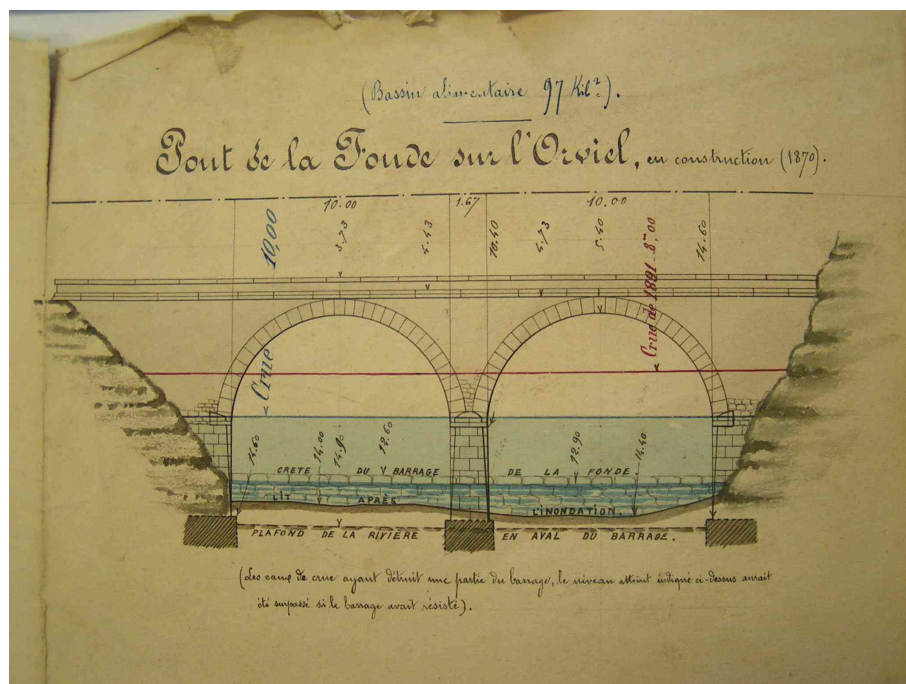 (Bassin alimentaire 97 Kil².).
Pont de la Fonde sur l'Orviel, en construction (1870).
10.00 1.67 10.00
10,00 3.73 4.43 10.40 4.73 5.40 14.60
Crue de 1891 8m,00
Crue
14.60 14.00 14.90 12.60 12.90 14.40
CRETE DU BARRAGE DE LA FONDE.
LIT APRÈS L'INONDATION.
PLAFOND DE LA RIVIERE EN AVAL DU BARRAGE.
(Les eaux de crue ayant détruit une partie du barrage, le niveau atteint indiqué ci-dessus aurait
été surpassé si le barrage avait résisté).